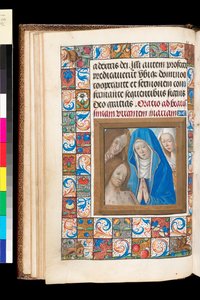 a dextris dei. Illi autem profecti
predicaverunt ubique domino
cooperante et sermonem con
firmante sequentibus signis
Deo gratias. Oratio ad beatis
simam virginem mariam